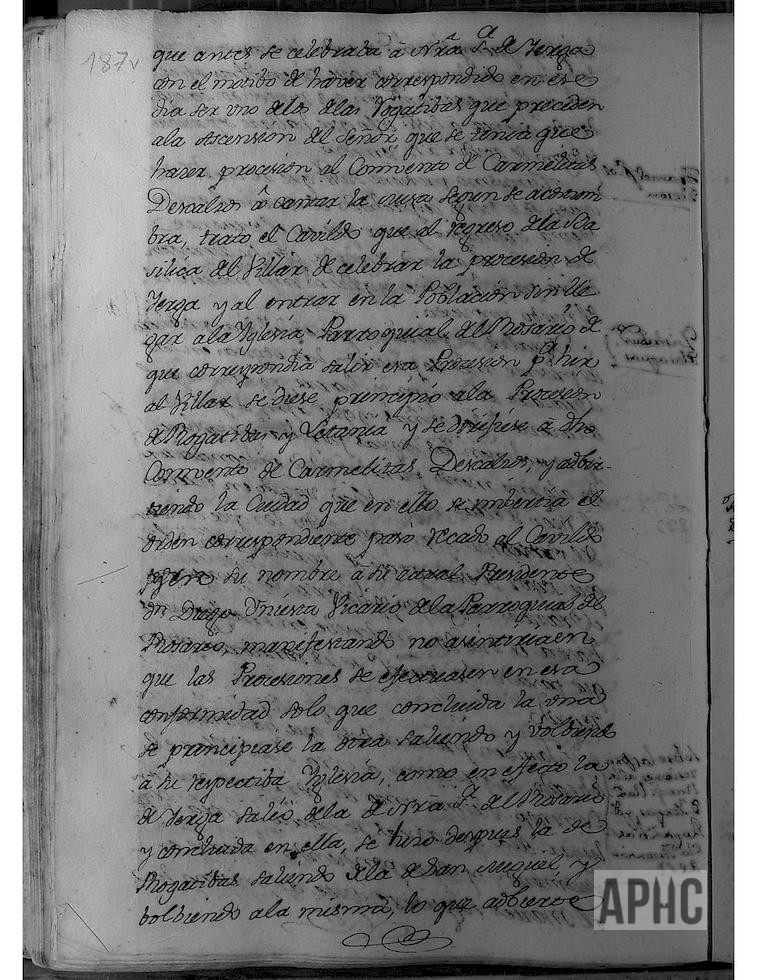 187v
que antes se celebraba â Nrâ Sª de Yerga
con el motibo de haver correspondido en ese
dia ser uno de los de las Rogatibas que preceden
a la Ascension del Señor, que se tenia que
haver procesion al Convento de Carmelitas
Descalzos â cantar la misa segun se acostum
bra, trató el Cavildo que al regreso de la Ba
silica del Villar de celebrar la procesion de
Yerga y al entrar en la Poblacion sin lle
gar a la Yglesia Parroquial del Rosario de
que correspondia salir esa Procesion pª hir
al Villar se diese principio a la Procesion
de Rogatibas y Letania y se dirijiese â dho
Convento de Carmelitas Descalzos, y adbir-
tiendo la Ciudad que en ello se imbertia el
orden correspondiente pasó recado al Cavildo
en su nombre â su actual Presidente
dn Diego Vicario de la Parroquial del
Rosario, manifestando no asintiria en
que las Procesiones se efectuasen en esa
conformidad solo que concluida la una
se principiase la otra saliendo y volbiendo
â su respectiba Yglesia, como en efecto la
de Yerga salió de la de Nrâ Sª del Rosario
y concluida en ella, se hizo despues la de
Rogatibas saliendo de la de San Miguel, y
bolbiendo a la misma, lo que adbierte
APHC